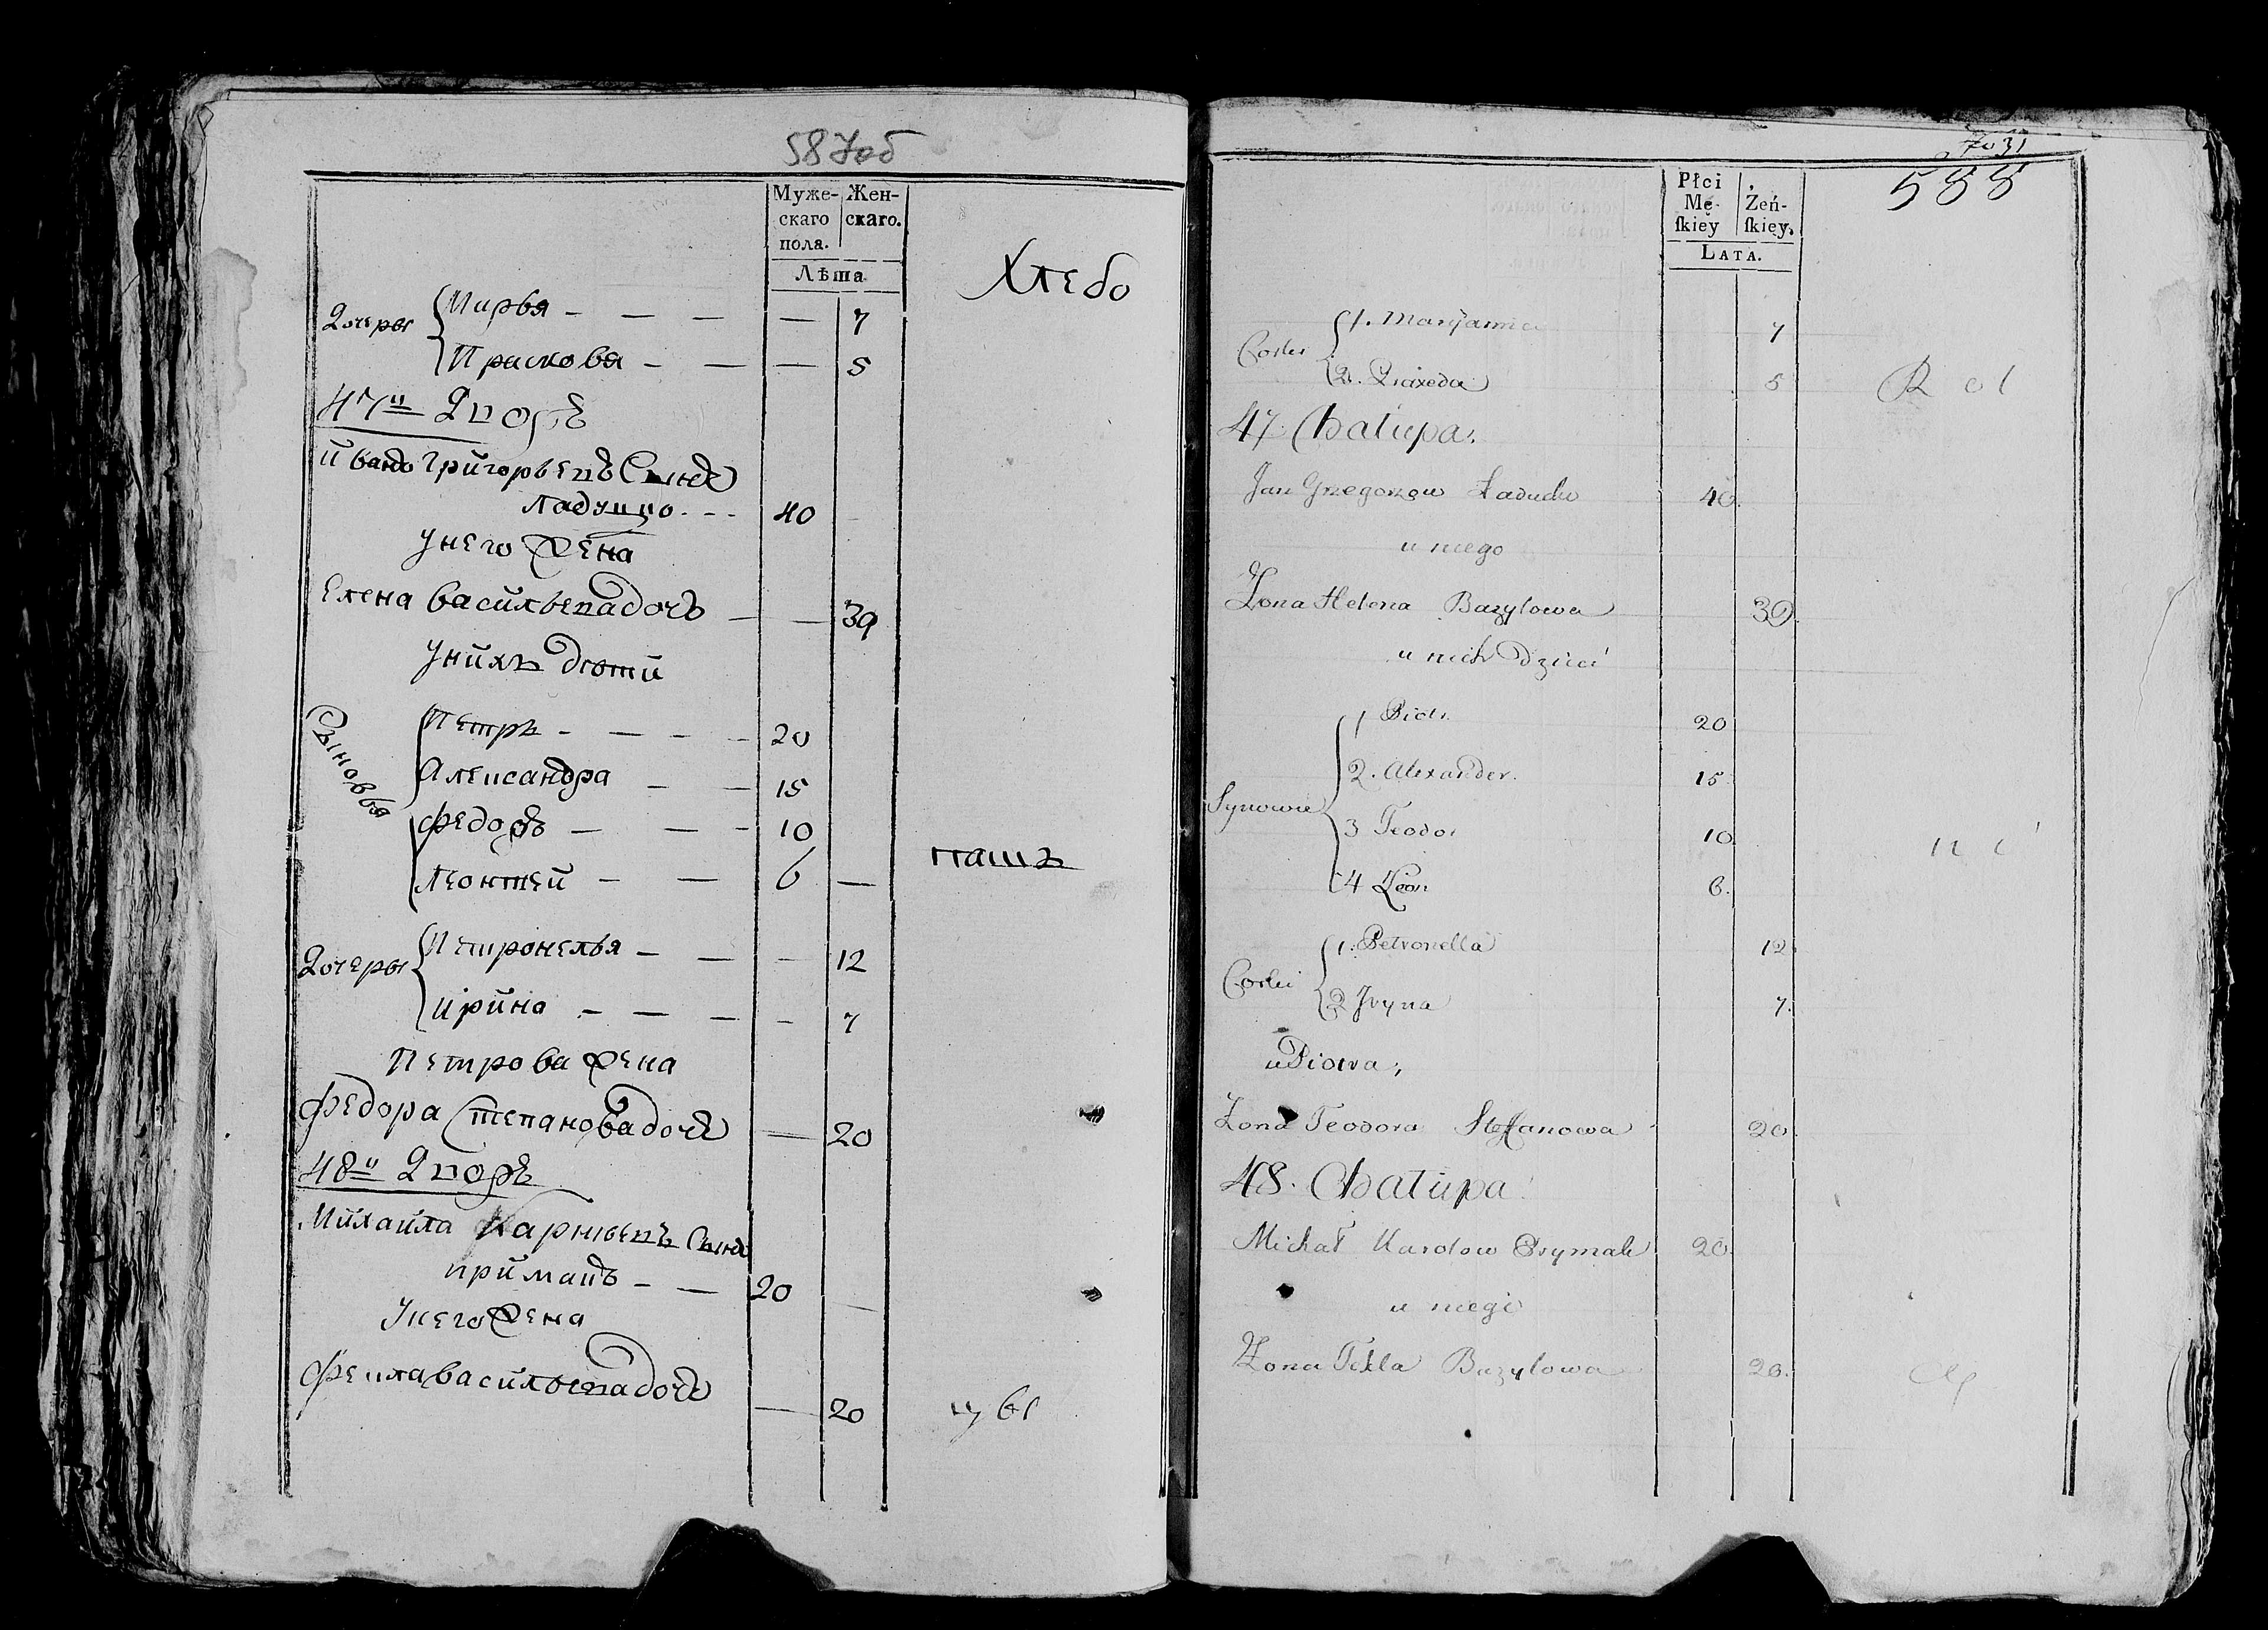 587об
Муже-
скаго
пола.
Жен-
скаго.
Лѣта
Хлебо
Дочеры
Марья - — — — 7
Прасковя - — — 5
47й Дворъ
йванъ Григорьевъ Сынъ
Ладушко - - - 40
Унего Жена
Елена Васильевадочъ — — 39
Унйхъ дѣтй
Сыновья
Петръ - — - - 20
Александра — — 15
Федоръ — — - 10
Леонтей — — 6 —
пашъ
Дочеры
Петронелья — — - 12
ирйна — — — - 7
Петрова Жена
Федора Степановадочъ — 20
48й Дворъ
Мйхайла Карнѣевъ Сынъ
прймакъ — — 20
Унего Жена
Фекла Васильевадочъ — 20
цы
7031
588
Płci
Mę-
skiey
Żeń-
skiey.
LATA.
Corki
1. Maryanna 7
2. Praxeda 5
Rol
47. Chałupa.
Jan Grzegorzow Ladudko 40.
u niego
Żona Helena Bazylowa 39.
u nich Dzieci
Synowie
1 Piotr 20
2. Alexander. 15.
3 Teodor 10
4 Leon 6.
ni
Corki
1. Petronella 12
2 Iryna 7.
u Piotra;
Żona Teodora Steffanowa 20.
48. Chałupa.
Michał Karolow Prymak 20.
u niego
Żona Tekla Bazylowa 20.
cy